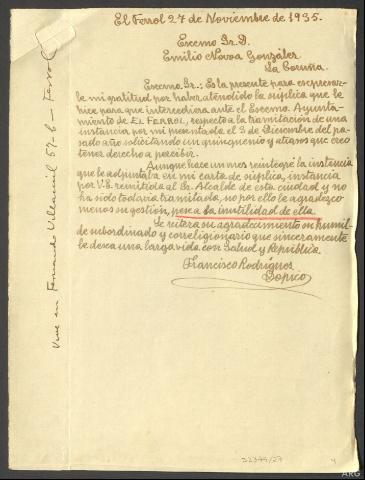 El Ferrol 27 de Noviembre de 1935.
Excmo Sr. D.
Emilio Novoa González
La Coruña.
Excmo Sr.: Es la presente para expresar-
le mi gratitud por haber atendido la súplica que le
hice para que intercediera ante el Excmo. Ayunta-
miento de EL FERROL, respecto a la tramitación de una
instancia por mi presentada el 3 de Diciembre del pa-
sado año solicitando un quinquenio y atrasos que creo
tener derecho a percibir.
Aunque hace un mes reintegré la instancia
que le adjuntaba en mi carta de súplica, instancia
por V.E. remitida al Sr. Alcalde de esta ciudad y no
ha sido todavia tramitada, no por ello le agradezco
menos su gestión, pese a la inutilidad de ella.
Le reitera su agradecimiento su humil-
de subordinado y correligionario que sinceramente
le desea una larga vida con Salud y República.
Francisco Rodríguez
Dopico
Vive en Fernando Villaamil 57-6 — Ferrol
32344/27
4
ARG